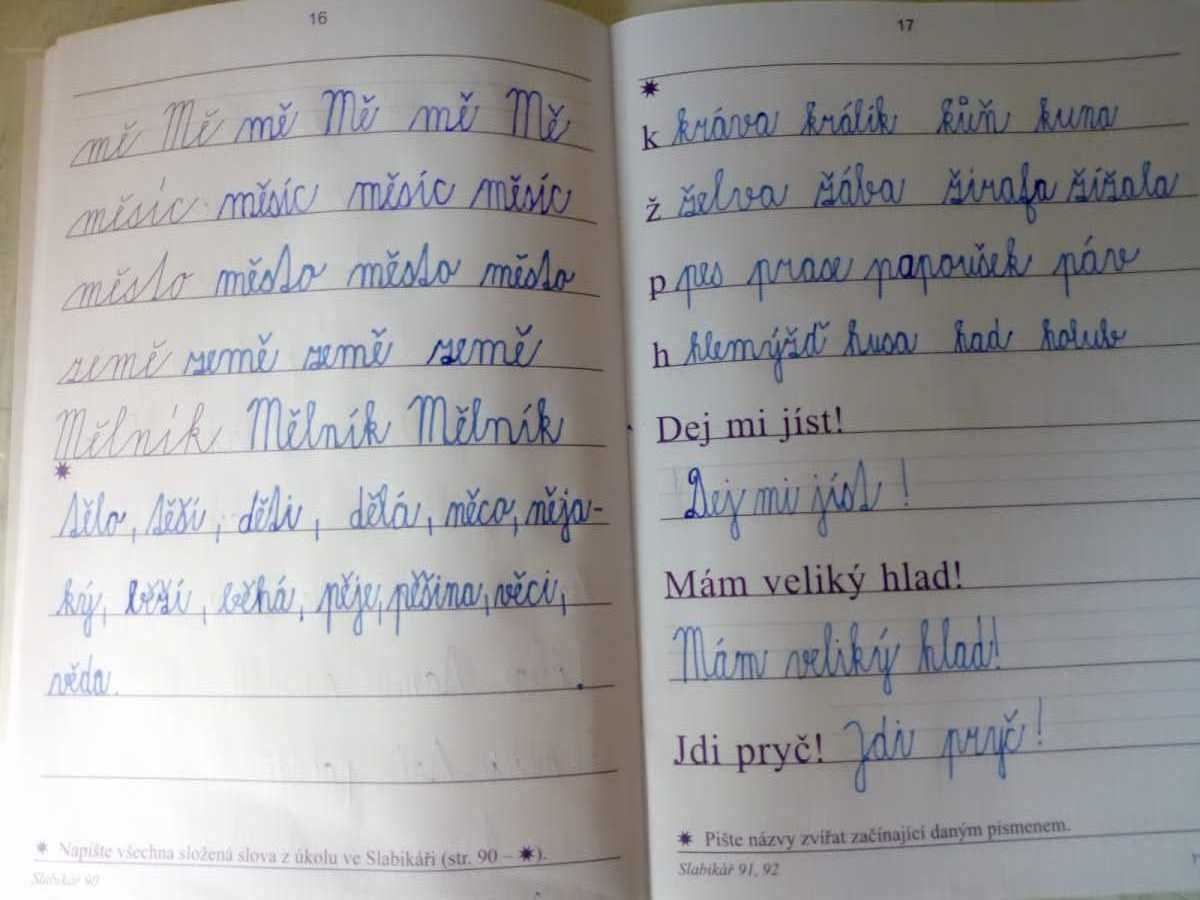 16
mě Mě mě Mě mě Mě
měsíc měsíc měsíc měsíc
město město město město
země země země země
Mělník Mělník Mělník
tělo, těší, děti, dělá, něco, něja-
ký, běží, běhá, pěje, pěšina, věci,
věda.
✷ Napište všechna složená slova z úkolu ve Slabikáři (str. 90 – ✷).
Slabikář 90
17
k kráva králík kůň kuna
ž želva žába žirafa žížala
p pes prase papoušek páv
h hlemýžď husa had holub
Dej mi jíst!
Dej mi jíst!
Mám veliký hlad!
Mám veliký hlad!
Jdi pryč! Jdi pryč!
✷ Pište názvy zvířat začínající daným písmenem.
Slabikář 91, 92